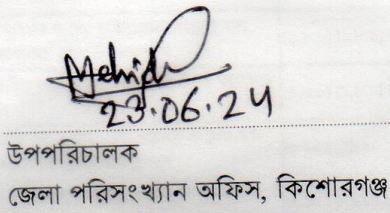 23.06.24
উপপরিচালক
জেলা পরিসংখ্যান অফিস, কিশোরগঞ্জ